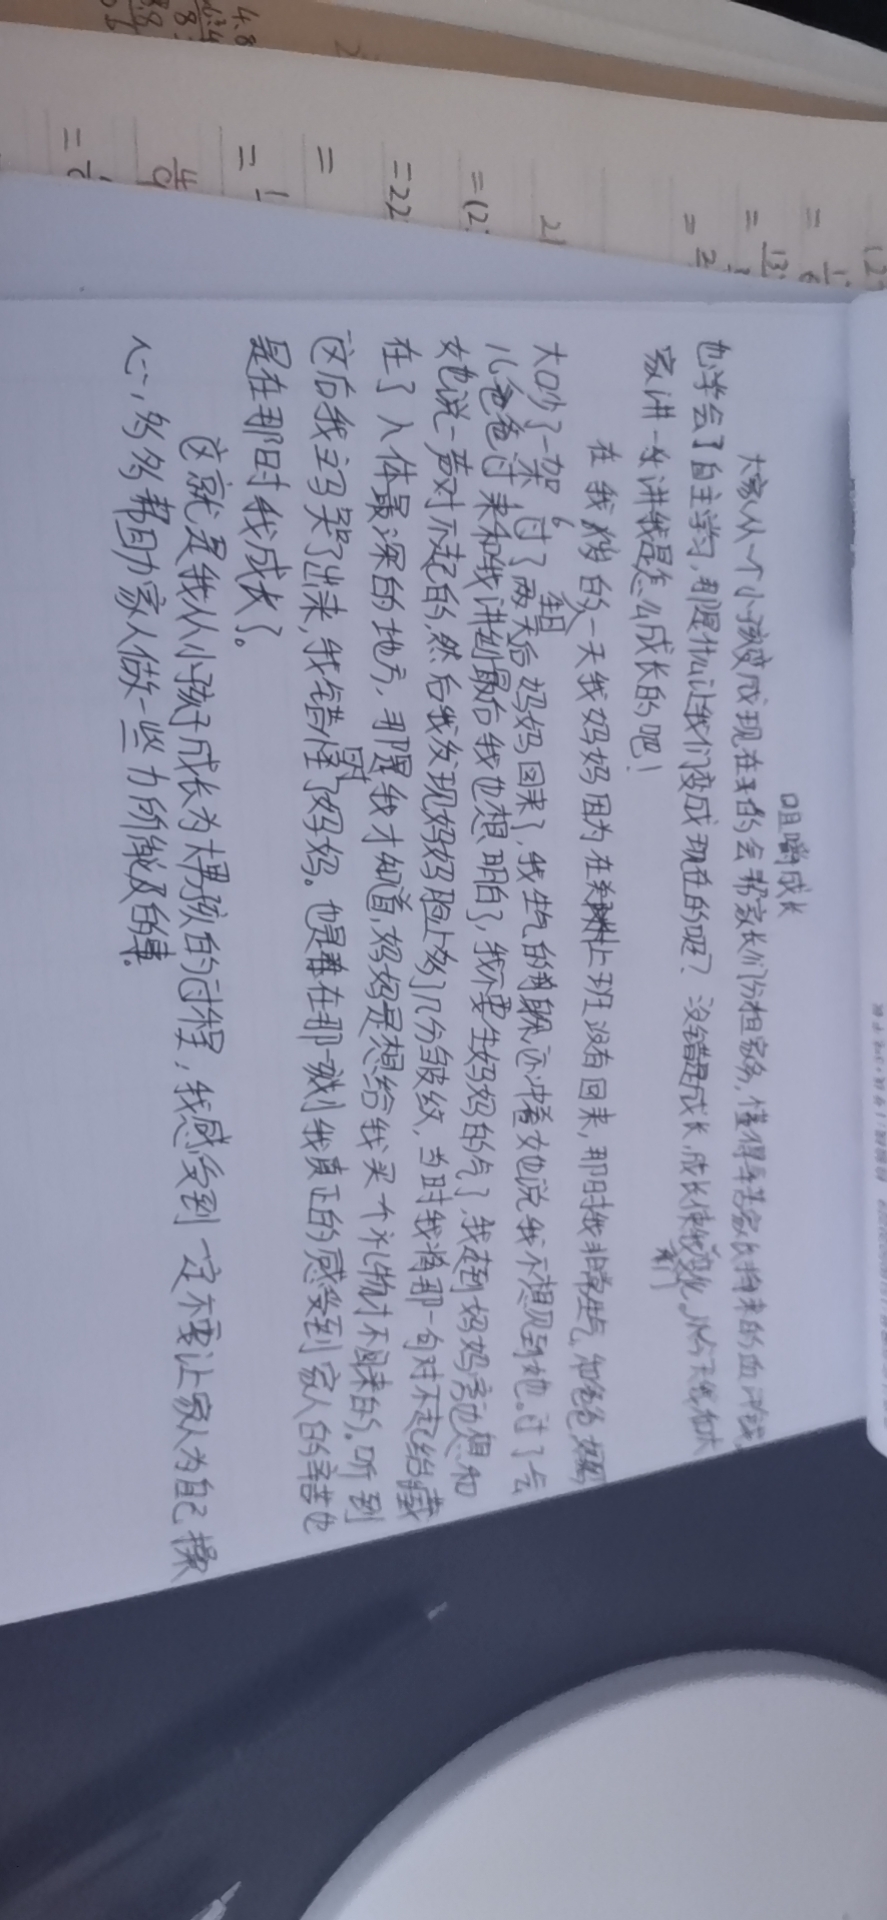 咀嚼成长
大家从一个小孩变成现在的会帮家长们分担家务,懂得辛苦家长挣来的血汗钱
也学会了自主学习,那是什么让我们变成现在的呢?没错是成长,成长使我们变化。从今天我和大
家讲一讲我是怎么成长的吧!
在我6岁的生日一天我妈妈因为在上班没有回来,那时我非常生气,和爸爸妈妈
大吵了一架,过了两天后妈妈回来了,我生气的还冲着她说我不想见到她。过了一会
儿爸爸过来和我讲到最后我也想明白了,我不要生妈妈的气了,我走到妈妈旁边想和
她说一声对不起的,然后我发现妈妈脸上多了几分皱纹,当时我将那一句对不起给藏
在了人体最深的地方,那时我才知道,妈妈是想给我买个礼物才不回来的。听到
这后我立马哭了出来,我错怪了妈妈。也是在那一刻我真正的感受到家人的辛苦也
是在那时我成长了。
这就是我从小孩子成长为大男孩的过程,我感受到一定不要让家人为自己操
心,多多帮助家人做一些力所能及的事。
4.8
=22
=(2
21